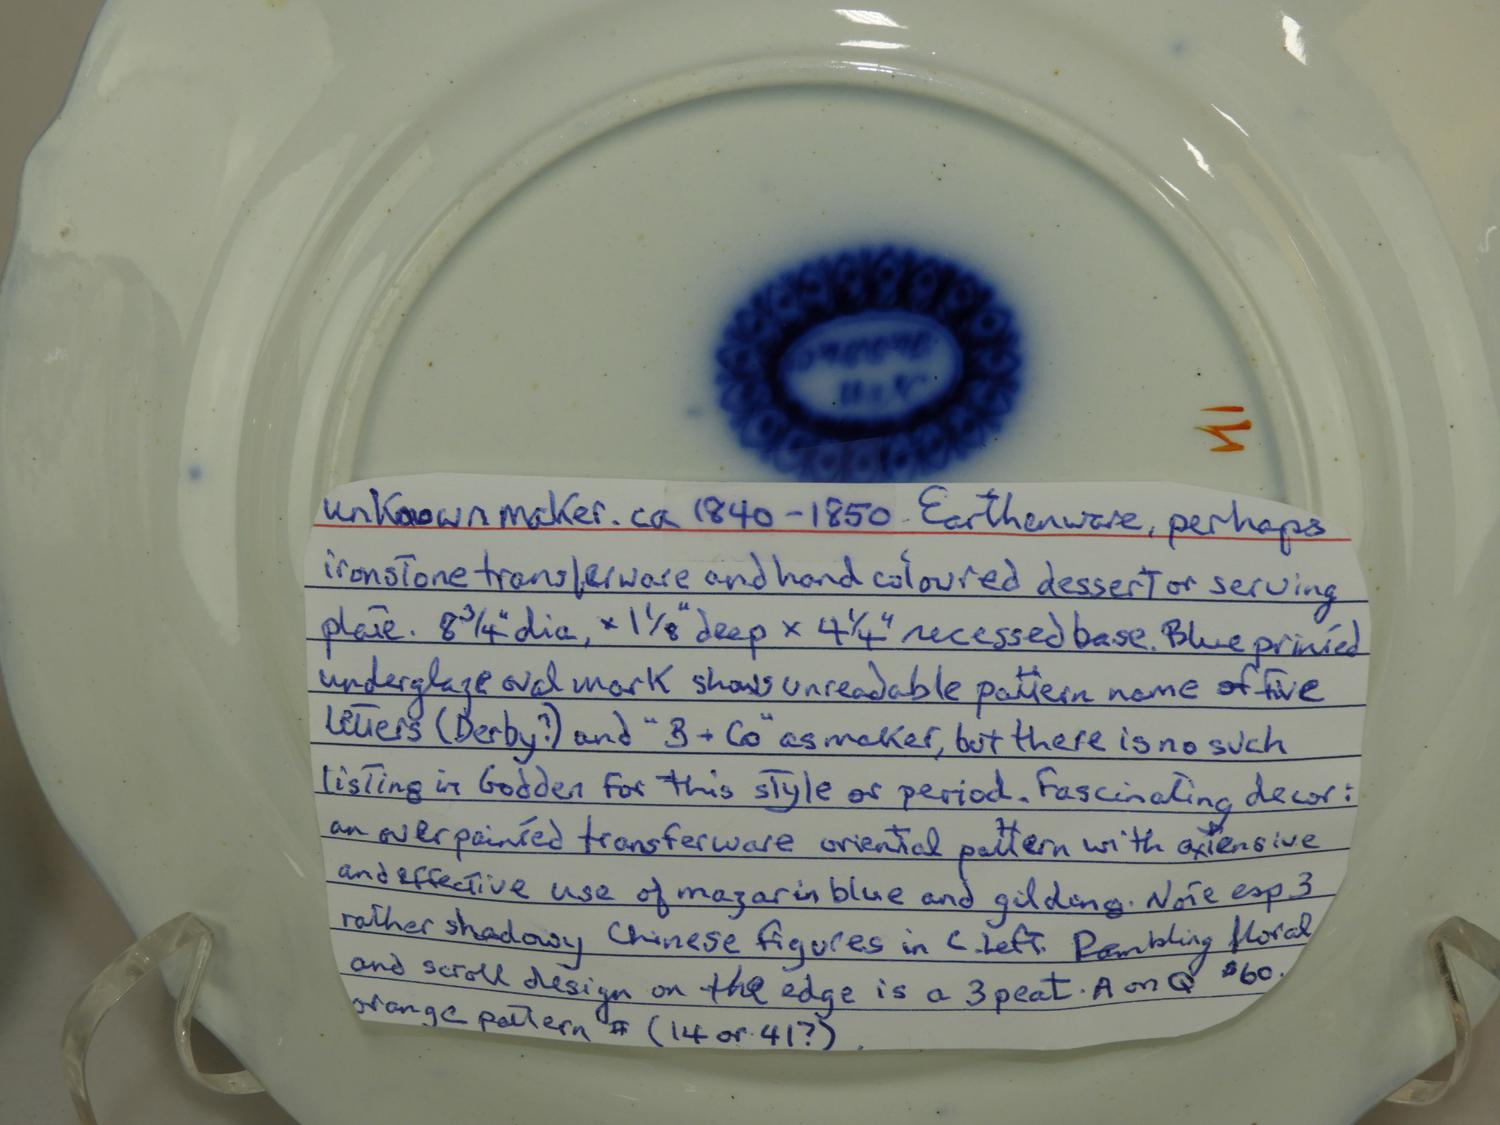 unknown maker. ca 1840-1850. Earthenware, perhaps
ironstone transferware and hand coloured dessert or serving
plate. 8 3/4" dia, x 1 1/8" deep x 4 1/4" recessed base. Blue printed
underglaze oval mark shows unreadable pattern name of five
letters (Derby?) and "B + Co" as maker, but there is no such
listing in Godden for this style or period. Fascinating decor:
an overpainted transferware oriental pattern with extensive
and effective use of mazarin blue and gilding. Note esp 3
rather shadowy Chinese figures in C. Left. Rambling floral
and scroll design on the edge is a 3 peat. A on Q $60.
orange pattern # (14 or 41?)